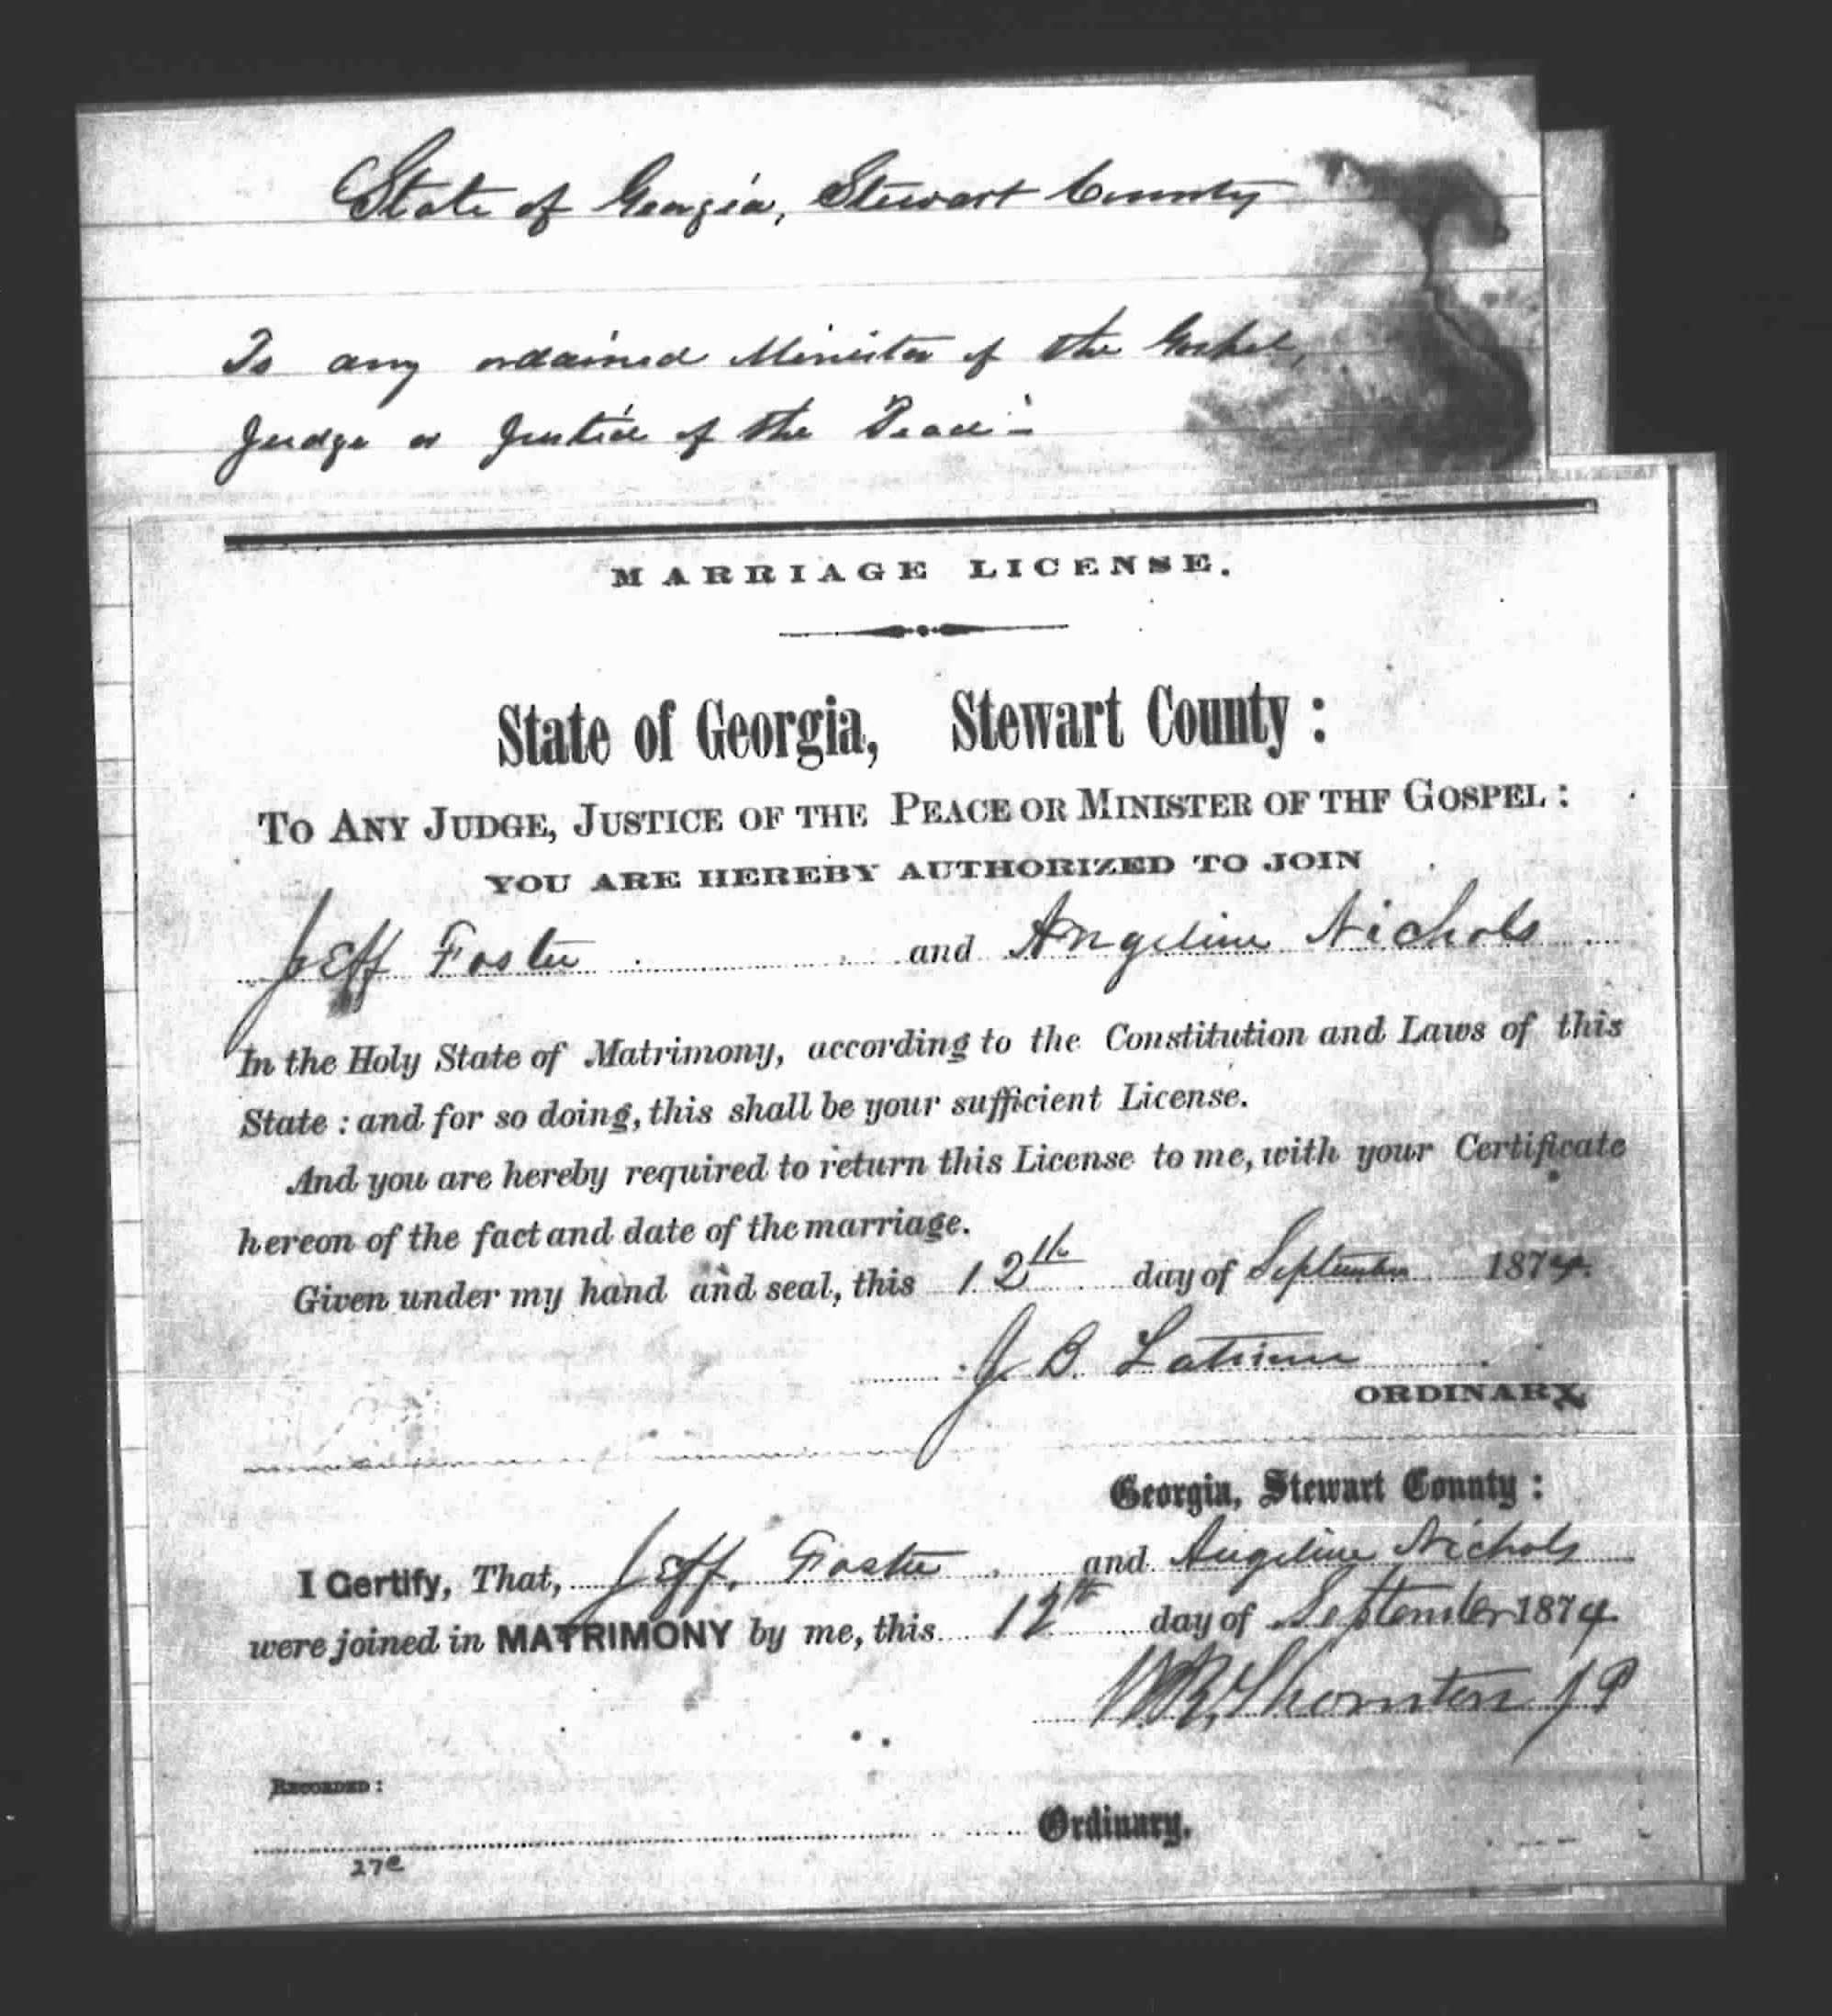 State of Georgia, Stewart County
To any ordained Minister of the Gospel,
Judge or Justice of the Peace:-
MARRIAGE LICENSE.
State of Georgia, Stewart County :
TO ANY JUDGE, JUSTICE OF THE PEACE OR MINISTER OF THF GOSPEL :
YOU ARE HEREBY AUTHORIZED TO JOIN
Jeff Foster and Angeline Nichols
In the Holy State of Matrimony, according to the Constitution and Laws of this
State : and for so doing, this shall be your sufficient License.
And you are hereby required to return this License to me, with your Certificate
hereon of the fact and date of the marriage.
Given under my hand and seal, this 12th day of September 1874.
J. B. Latimer
ORDINARY,
Georgia, Stewart County :
I Certify, That, Jeff. Foster and Angeline Nichols
were joined in MATRIMONY by me, this 12th day of September 1874
Thornton JP
RECORDED :
Ordinary.
27e